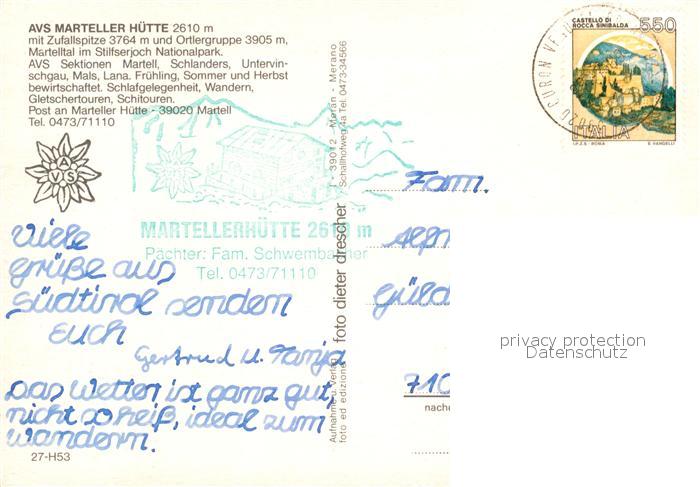 AVS MARTELLER HÜTTE 2610 m
mit Zufallspitze 3764 m und Ortlergruppe 3905 m,
Martelltal im Stilfserjoch Nationalpark.
AVS Sektionen Martell, Schlanders, Untervin-
schgau, Mals, Lana. Frühling, Sommer und Herbst
bewirtschaftet. Schlafgelegenheit, Wandern,
Gletschertouren, Schitouren.
Post an Marteller Hütte - 39020 Martell
Tel. 0473/71110
AVS
MARTELLERHÜTTE 2610 m
Pächter: Fam. Schwembacher
Tel. 0473/71110
Viele
grüße aus
Südtirol senden
euch
Gertrud u. Tanja
Das Wetter ist ganz gut,
nicht so heiß, ideal zum
wandern.
27-H53
Aufnahme u. Verlag
foto ed edizione
foto dieter drescher
I - 39012 - Meran - Merano
Schallhofweg 4a Tel. 0473-34566
CASTELLO DI
ROCCA SINIBALDA
550
ITALIA
I.P.Z.S. - ROMA
E. VANGELLI
CURON VE
Fam.
Güld
710
nache
privacy protection
Datenschutz